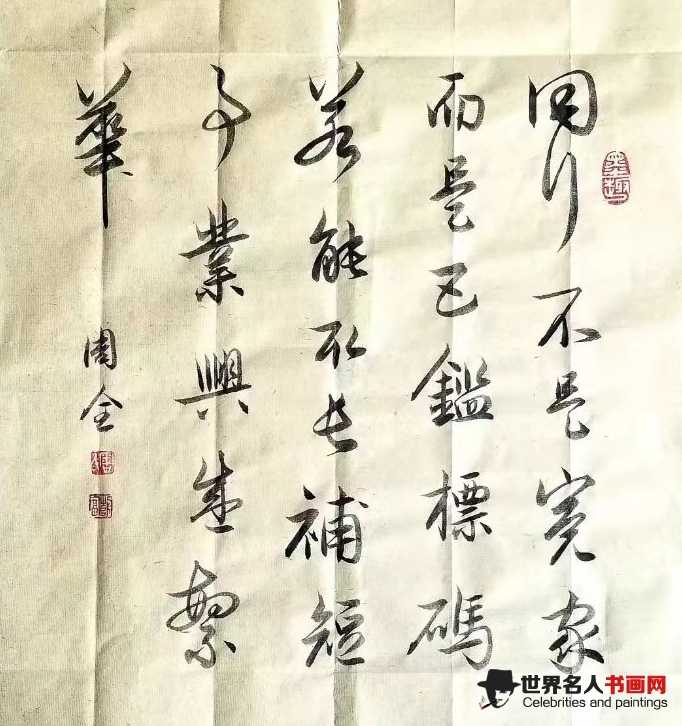 同行不是冤家
而是己鑑標碼
若能取长補短
事業興盛繁
華
周全
世界名人书画网
Celebrities and paintings